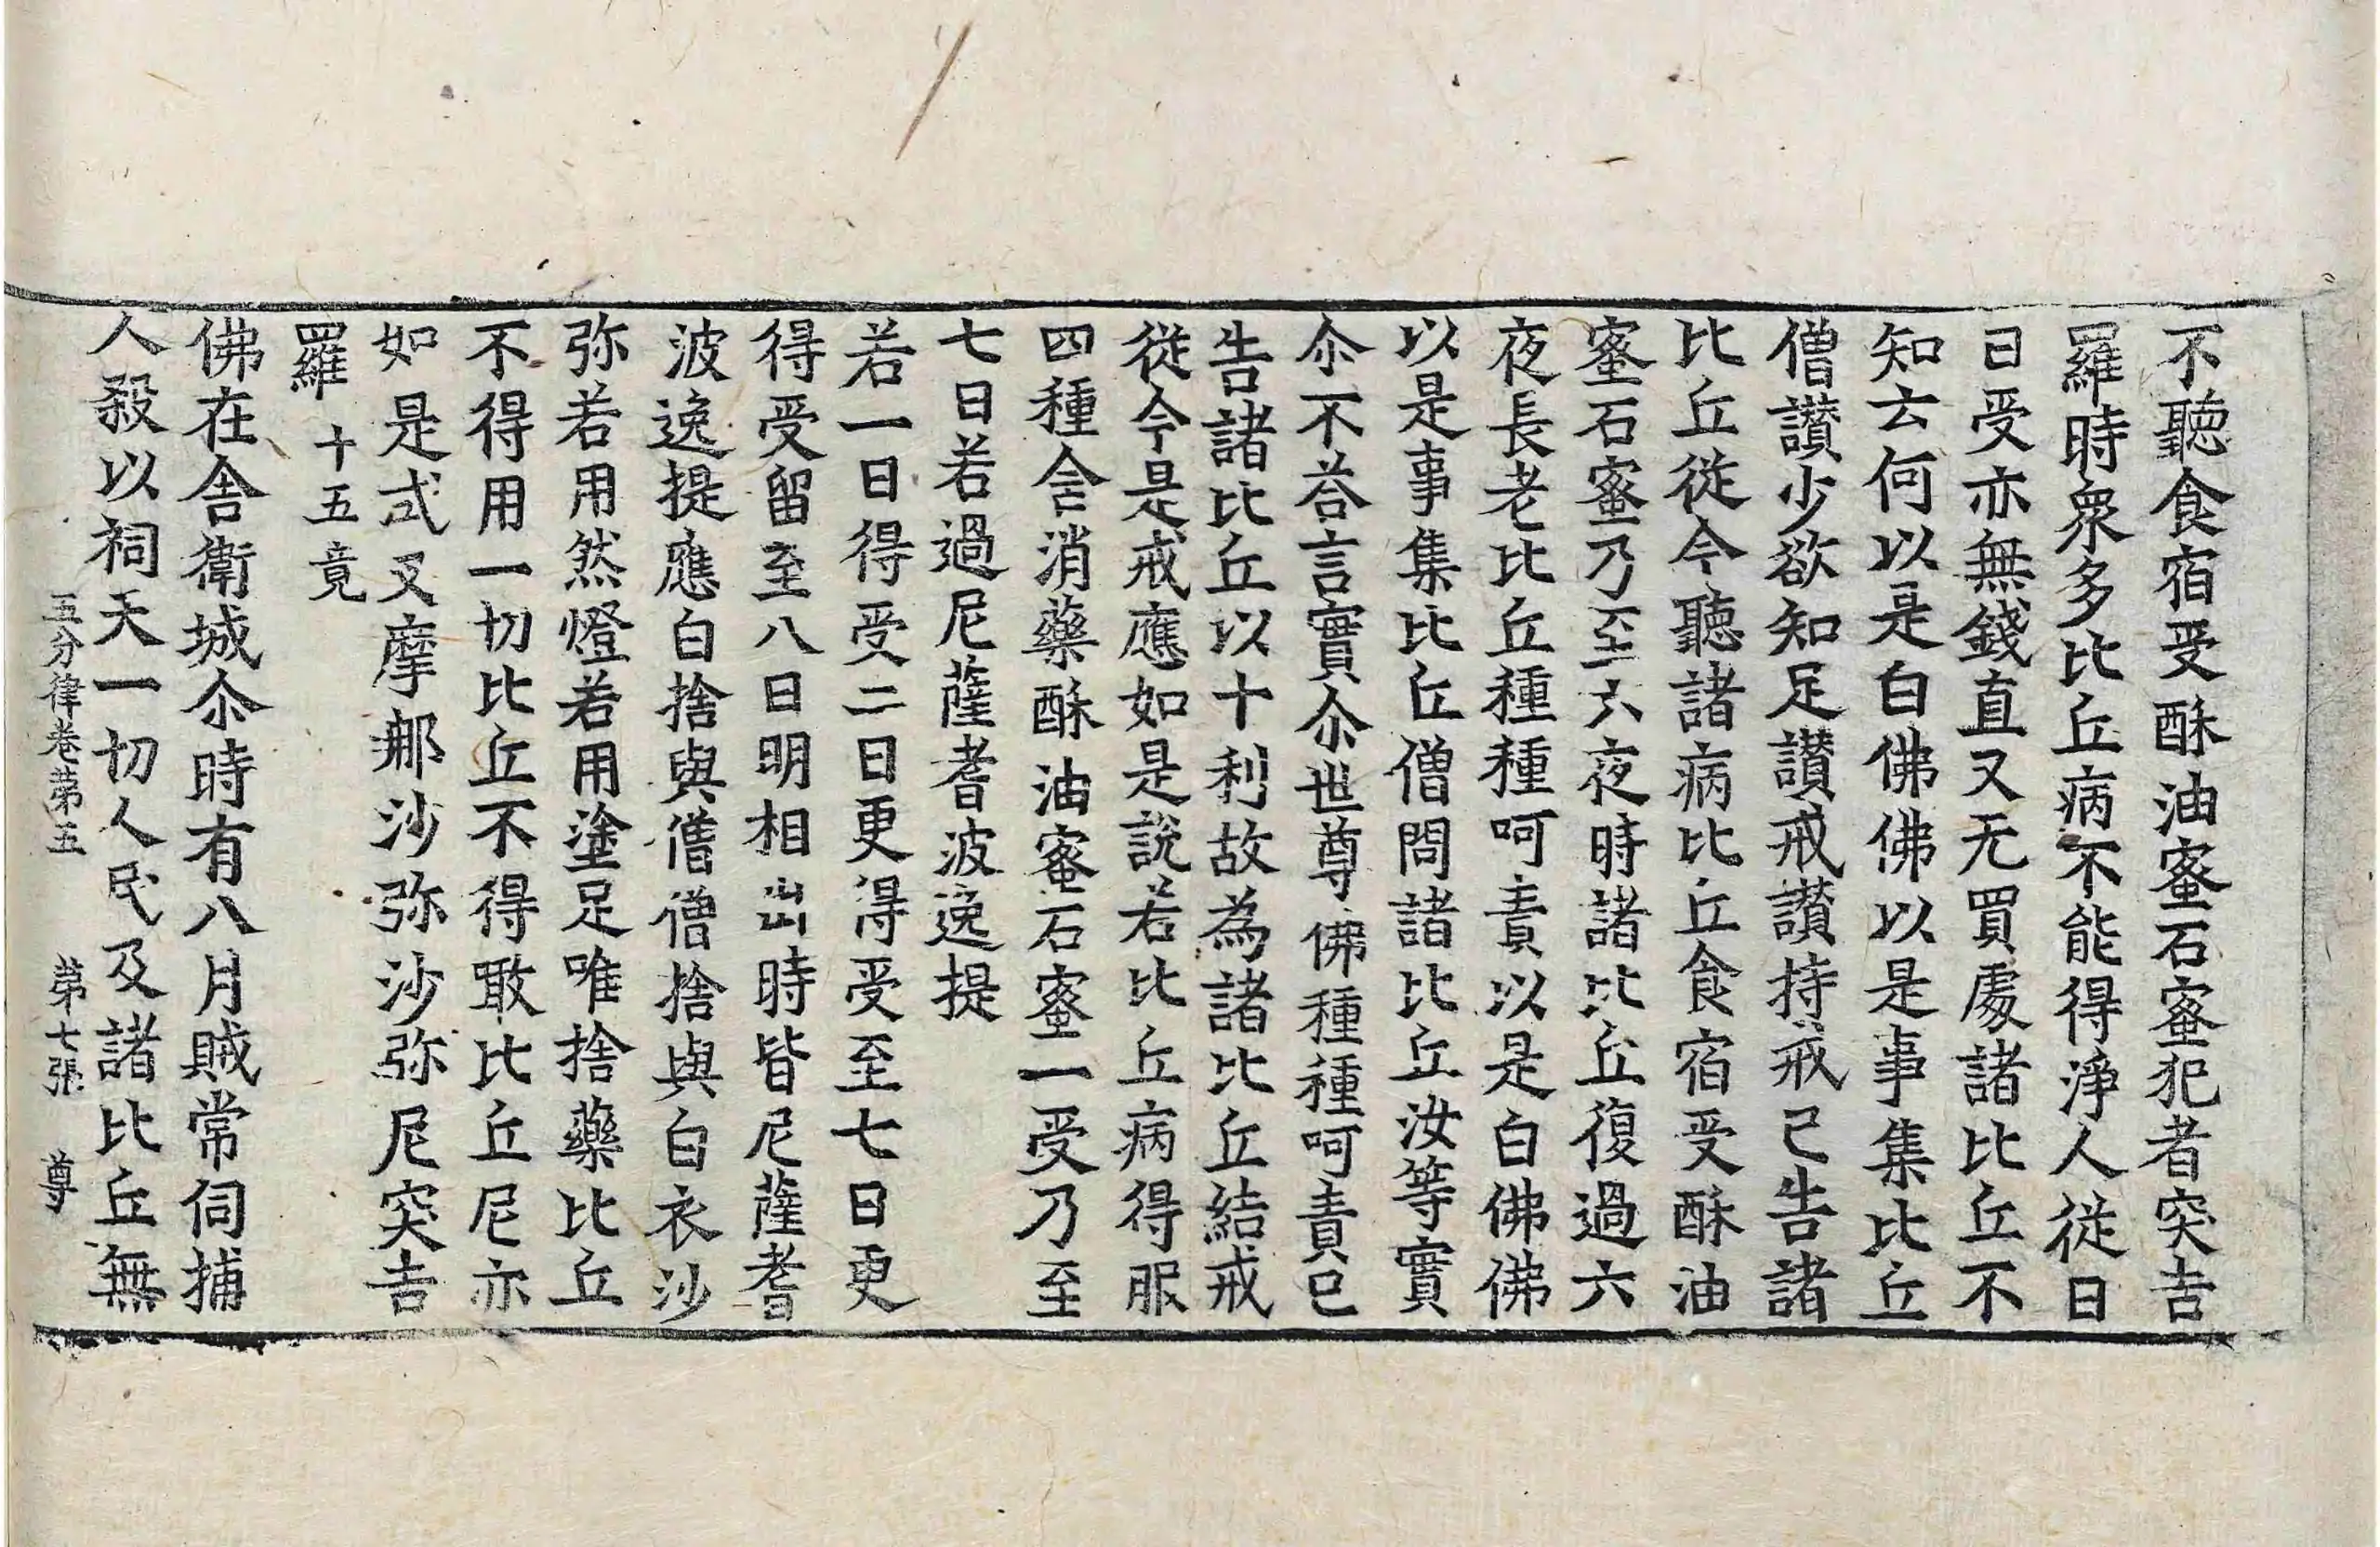 不聽食宿受酥油蜜石蜜犯者突吉
羅時衆多比丘病不能得淨人從日
日受亦無錢直又无買處諸比丘不
知云何以是白佛佛以是事集比丘
僧讃少欲知足讃戒讃持戒已告諸
比丘從今聽諸病比丘食宿受酥油
蜜石蜜乃至六夜時諸比丘復過六
夜長老比丘種種呵責以是白佛佛
以是事集比丘僧問諸比丘汝等實
尒不荅言實尒世尊佛種種呵責已
告諸比丘以十利故為諸比丘結戒
從今是戒應如是說若比丘病得服
四種含消藥酥油蜜石蜜一受乃至
七日若過尼薩耆波逸提
若一日得受二日更得受至七日更
得受留至八日明相出時皆尼薩耆
波逸提應白捨與僧僧捨與白衣沙
弥若用然燈若用塗足唯捨藥比丘
不得用一切比丘不得噉比丘尼亦
如是式叉摩那沙弥沙弥尼突吉
羅 十五竟
佛在舍衛城尒時有八月賊常伺捕
人殺以祠天一切人民及諸比丘無
五分律卷第五 第七張 尊